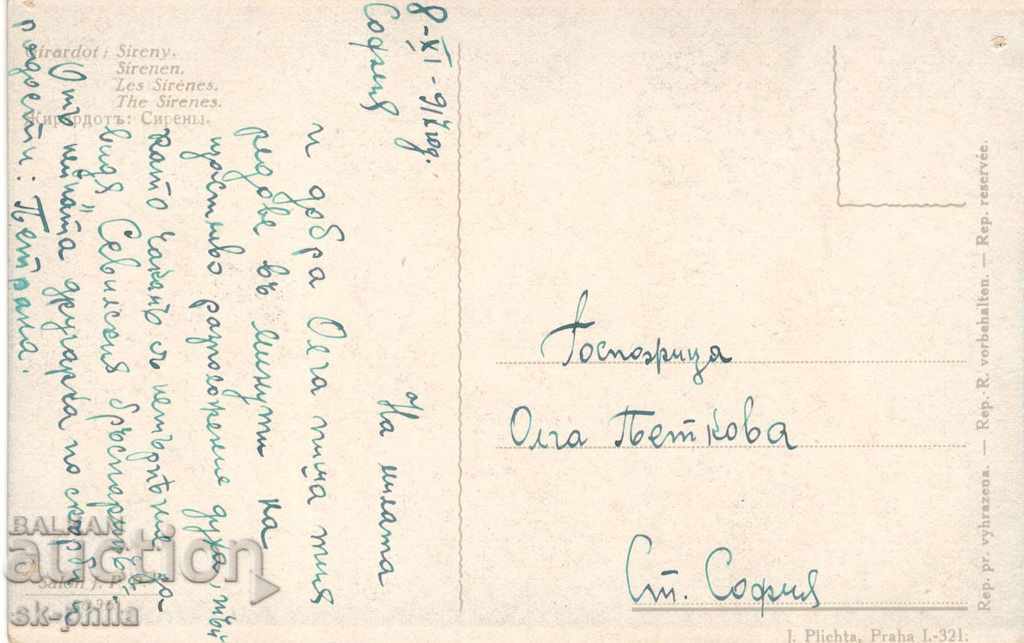 Girardot: Sireny.
Sirenen.
Les Sirènes.
The Sirenes.
Жирардотъ: Сирены.
8-XI-917 год.
София
На милата
и добра Олга пиша тия
редове въ минути на
щастливо разположение духа, тъй
като чакамъ съ нетърпѣние да
видя "Севилския бръснаръ".
Отъ нейната другарка по скърби и
радости: Петрана.
Госпожица
Олга Петкова
Ст. София
Salon J. P. P.
Rep. pr. vyhrazena. — Rep. R. vorbehalten. — Rep. reservée.
J. Plichta, Praha I.-321.
BALKAN
auction
sk-phila